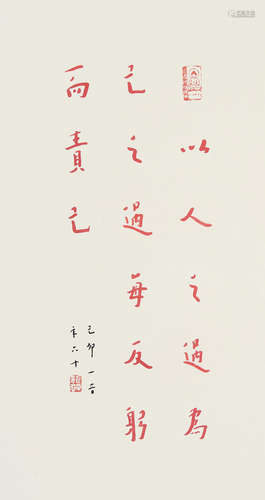 以人之過為
己之過每反躬
而責己
己卯一音
年六十